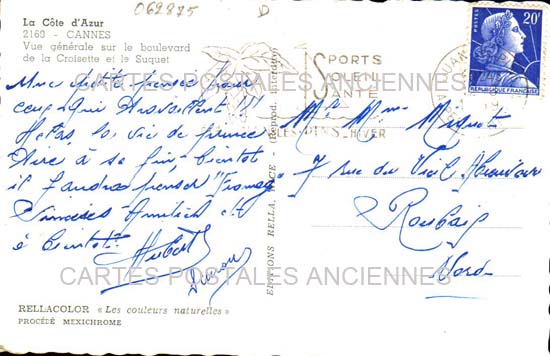 062875
D
La Côte d'Azur
2160 - CANNES
Vue générale sur le boulevard
de la Croisette et le Suquet
Une petite pensée pour
ceux qui travaillent !!!
Hélas la vie de prince
tire à sa fin, bientôt
il faudra penser "
Sincères Amitiés et
à bientôt
Hubert
EDITIONS RELLA, NICE - (Reprod. interdite)
SPORTS
SOLEIL
SANTÉ
LES PINS HIVER
POSTES
20F
REPUBLIQUE FRANÇAISE
Mr Mme
7 rue du Vieil Abreuvoir
Roubaix
Nord
CARTES POSTALES ANCIENNES
CARTES POSTALES ANCIENNES
RELLACOLOR « Les couleurs naturelles »
PROCÉDÉ MEXICHROME